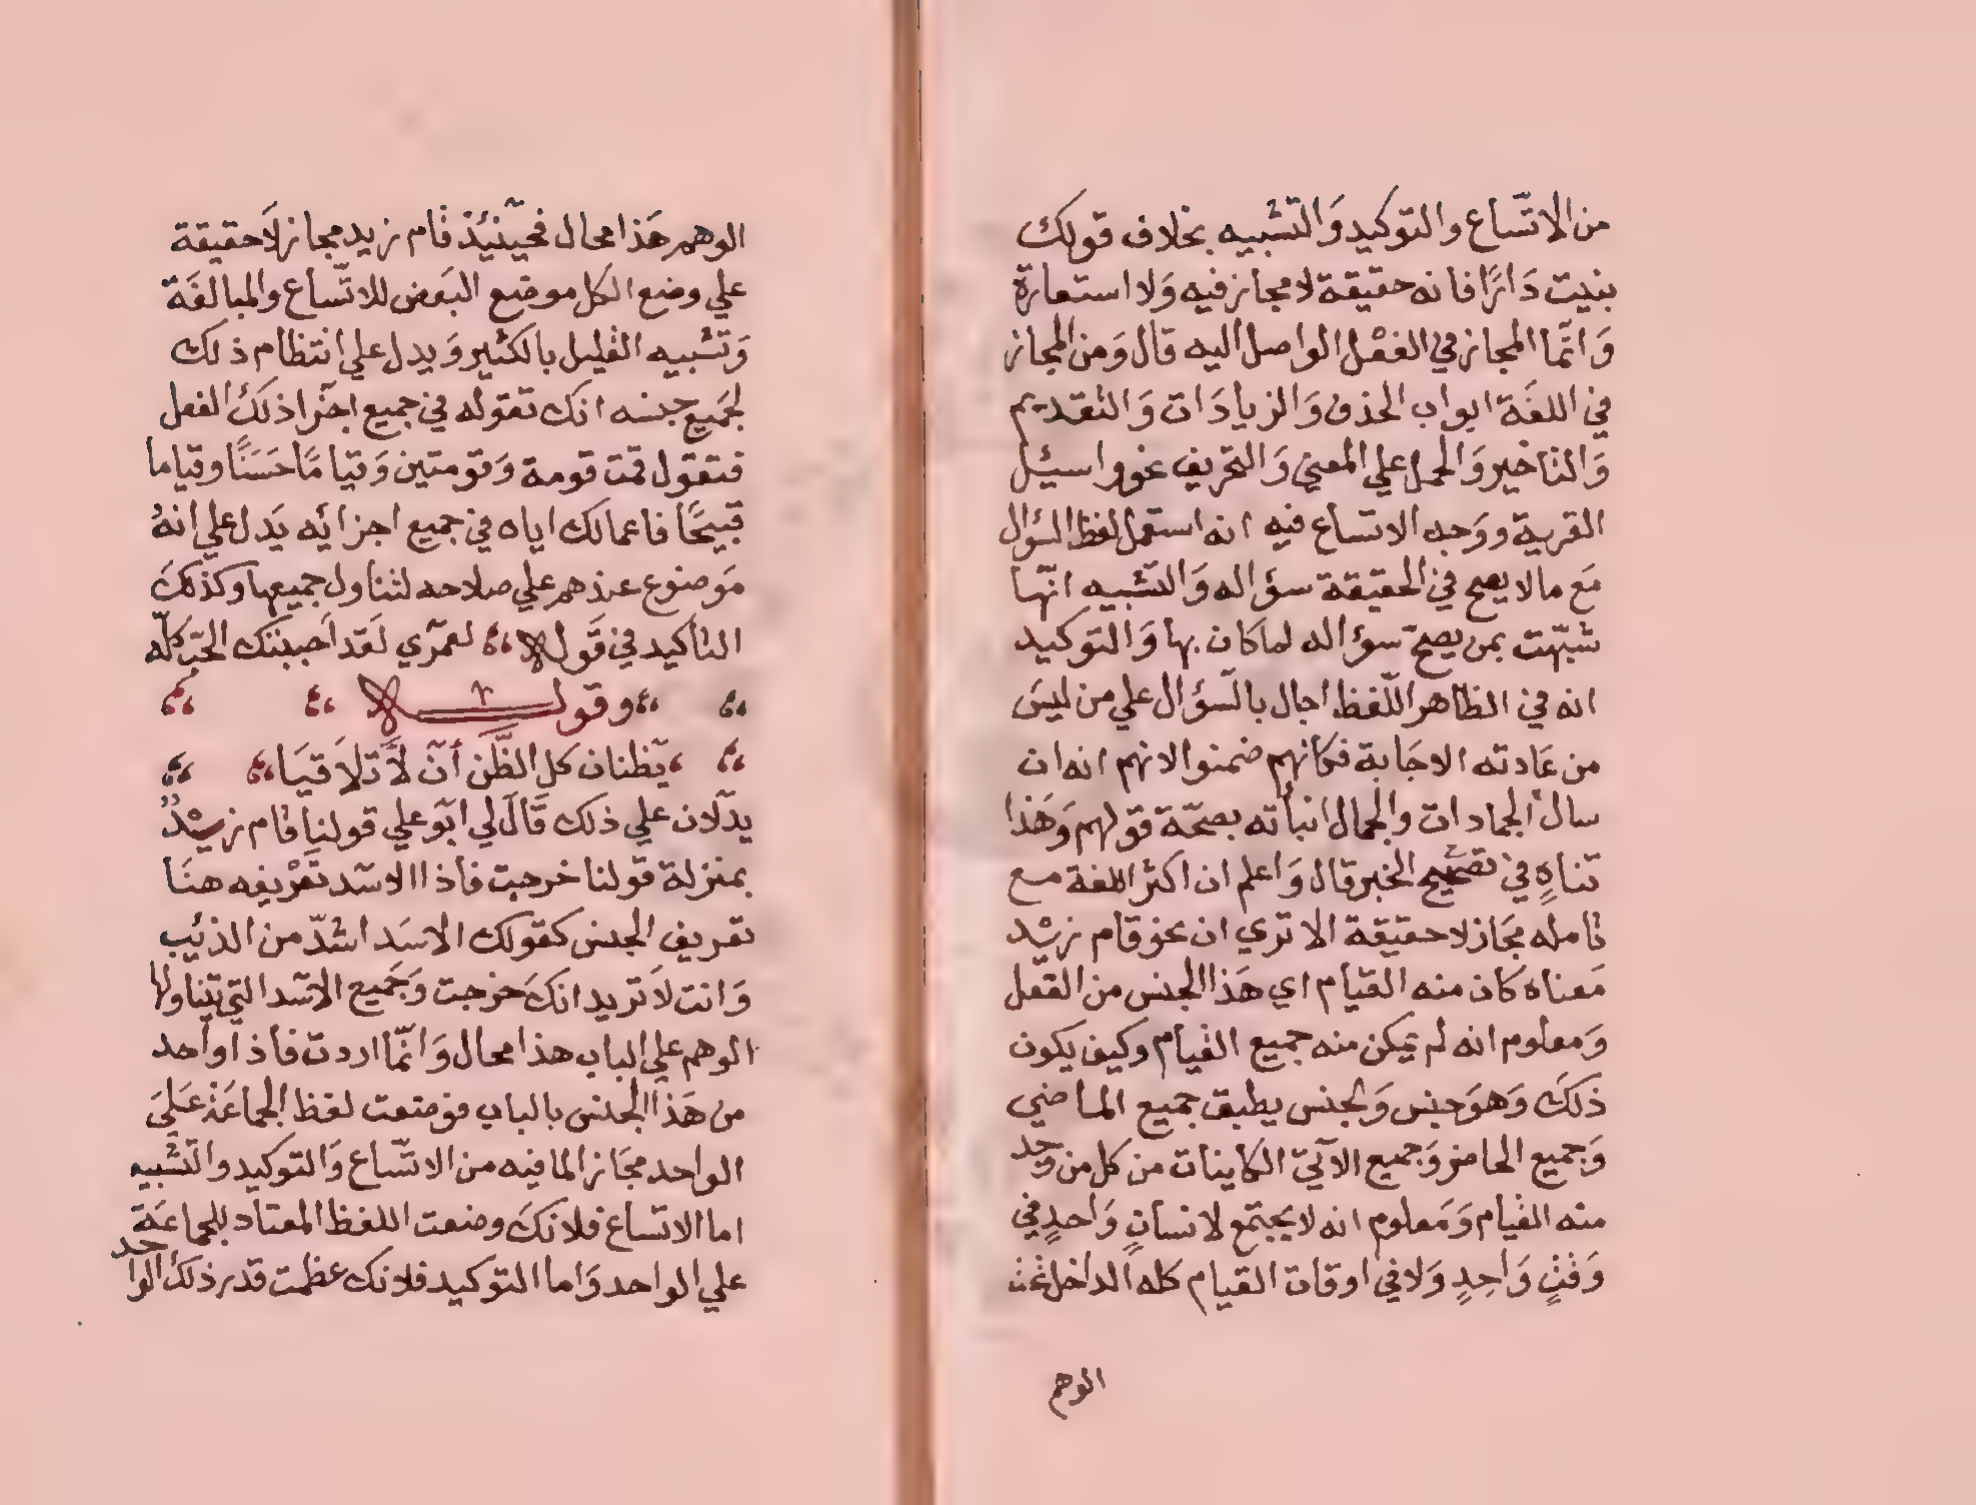 من الاتّساع والتوكيد وَالتّشبيه بخلاف قولك
بنيت دَارًا فانه حقيقة لا مجاز فيه وَلا استعارة
وَانّما المجاز في الفعْل الواصل اليه قال وَمن المجاز
في اللغَة ابواب الحذف وَالزيادَات وَالتقديم
وَالتاخير وَالحمل علي المعني وَالتحريف نحو واسئل
القرية ووَجه الاتساع فيه انه استعمل لفظ السؤال
مَع ما لا يصح في الحقيقة سؤاله وَالتّشبيه انّها
شبّهت بمن يصحّ سؤاله لما كان بها وَالتوكيد
انه في الظاهر اللّفظ احال بالسّؤال علي من ليسَ
من عَادته الاجَابة فكانهم ضمنوا لانهم انه ان
سال الجمادات والجمال انبأته بصحّة قولهم وَهَذا
تناهٍ في تصحيح الخبر قال وَاعلم ان اكثر اللغة مع
تامله مجَاز لا حقيقة الا تري ان نحو قام زيد
مَعناه كان منه القيام اي هَذا الجنس من الفعل
وَمعلوم انه لم يمكن منه جميع القيام وكيف يكون
ذلكَ وَهوَ جنس وَالجنس يطبق جميع الماضي
وَجميع الحاضر وَجميع الآتيّ الكاينات من كل من وجد
منه القيام وَمَعلوم انه لا يجتمع لانسانٍ وَاحدٍ في
وَقتٍ وَاحِدٍ وَلا في اوقات القيام كله الداخل تحت
الوهم
الوهم هَذا محال فحينئذ قام زيد مجاز لَا حقيقة
علي وضع الكل موضع البَعض للاتّساع والمبالغَة
وَتشبيه القليل بالكثير وَيدل علي انتظام ذلك
لجَميع جنسه انك تقوله في جميع اجزا ذلكَ الفعل
فتقول قمت قومة وَقومتين وَقيامًا حَسَنًا وقياما
قبيحًا فاعمالك اياه في جميع اجزائه يَدل علي انهُ
مَوضوع عندهم علي صلاحه لتناول جميعها وكذلكَ
التاكيد في قَوله لعمرّي لَقد اَحببتك الحبّ كلّه
وقولـــه
يَظنان كل الظّن أنّ لَّا تلَاقيَا
يدلّان علي ذلك قَالَ لي ابَو علي قولنا قام زيد
بمنزلة قولنا خرجت فاذا الاسَد تَعْريفه هنَا
تعريف الجنس كقولك الاسَد اشدّ من الذئب
وَانت لَا تريد انكَ خرجت وَجَميع الاسَد التي تتناولها
الوهم علي الباب هذا محال وَانّما اردت فاذا واحد
من هَذا الجنس بالباب فوضعت لفظ الجماعَة عَلَيَ
الواحد مجَازا لما فيه من الاتّساع وَالتوكيد والتّشبيه
اما الاتساع فلانكَ وضعت اللفظ المعتاد للجماعَة
علي الواحد وَاما التوكيد فلانك عظمت قدر ذلكَ الواحد